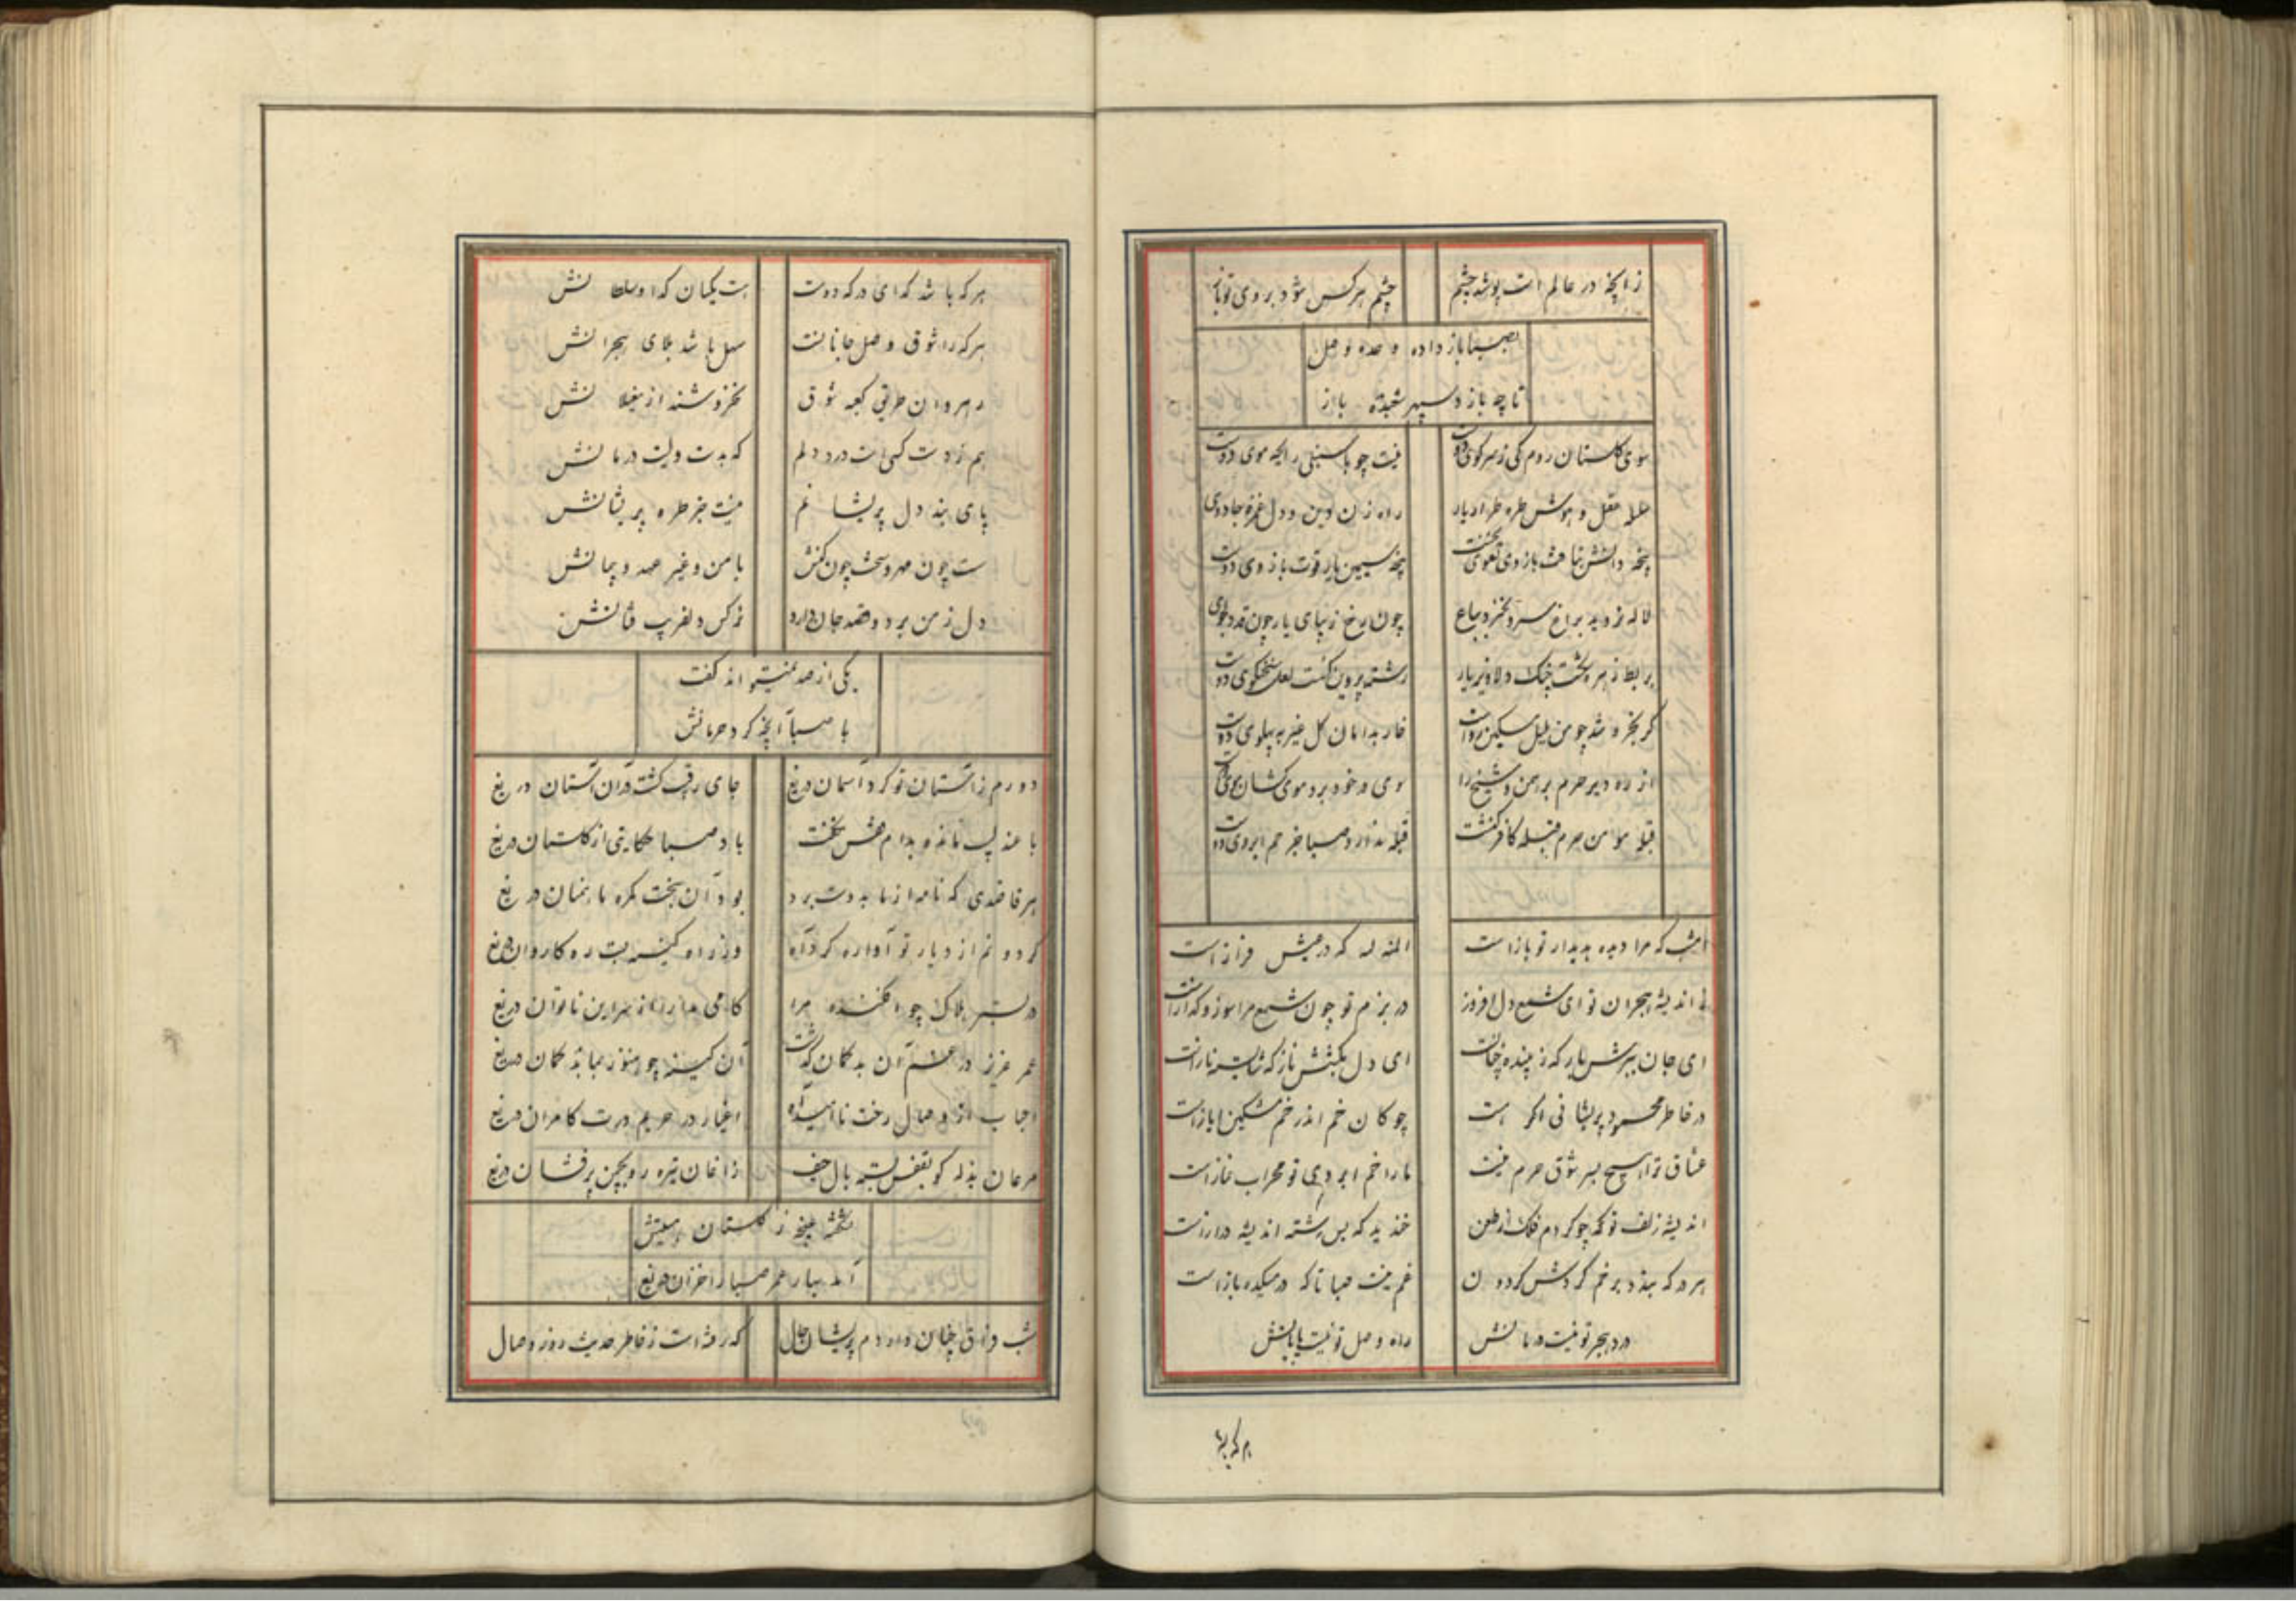 ز آنچه در عالم است پوشد چشم چشم هر کس شود بروی تو باز
بصبا باز داده وعده وصل
تا چه بازد سپهر شعبده باز
سوی گلستان روم کی ز سر کوی دوست نیست چو با سنبلی رایحه موی دوست
عقل و هوش طره طرار یار راه زن دین و دل غمزه جادوی
پنجه دانش بتافت بازوی تقوی پنجه سیمین یار قوت بازوی دوست
لاله نروید براغ سرو نخیزد بباغ چون رخ زیبای یار چون قد دلجوی
بربط زهره چنگ دلاویز یار رشته پروین لعل سخنگوی دوست
گر بخروشد چو من بلبل مسکین رواست خار بدامان گل غیر به پهلوی دوست
از ره دیر و حرم برهمن و شیخ را موی کشان
قبله مؤمن حرم قبله کافر کنشت قبله ندارد صبا جز خم ابروی دوست
امشب که مرا دیده بدیدار تو باز است المنه لله که در عیش فراز است
اندیشه هجران تو ای شمع دل افروز در بزم تو چون شمع مرا سوز و گداز است
ای جان ببرش یار که زیبنده چنانست ای دل بکشش ناز که شایسته ناز است
در خاطر محمود پریشانی اگر است چوگان خم اندر خم مشکین ایاز است
عشاق ترا هیچ بسر شوق حرم نیست ما را خم ابروی تو محراب نماز است
اندیشه زلف تو چو کردم فلک از طعن خندید که بس رشته اندیشه دراز است
هر در که ببندد برخم گردش گردون غم نیست صبا تا که در میکده باز است
درد هجر تو نیست درمانش راه وصل تو نیست پایانش
هر که باشد گدای درگه دوست هست یکسان گدا و سلطانش
هر که را شوق وصل جانانست سهل باشد بلای هجرانش
رهروان طریق کعبه شوق نخروشند از مغیلانش
هم ز دست کسی است درد دلم که بدست ویست درمانش
پای بند دل پریشانم نیست جز طره پریشانش
سست چون مهر و سخت چون کینش با من و غیر عهد و پیمانش
دل ز من برد و قصد جان دارد نرگس دلفریب فتانش
یکی از صد نمیتواند گفت
با صبا آنچه کرد حرمانش
دورم ز آستان تو کرد آسمان دریغ جای رقیب گشت در آن آستان دریغ
با عندلیب مانده بدام نگفت باد صبا حکایتی از گلستان دریغ
هر قاصدی که نامه از ما بدوست برد بود آن دریغ
گردونم از دیار تو آواره کرد آه وز راه کینه بست ره کاروان دریغ
در بستر هلاک چو افکنده مرا این ناتوان دریغ
عمر عزیز در غم آن بدگمان گذشت آن
احباب از وصال رخت ناامید آه اغیار در حریم درت کامران دریغ
مرغان بذله گو بقفس بسته بال حیف زاغان تیره رو بچمن پرفشان دریغ
ز گلستان
آمد بهار عمر صبا را خزان دریغ
شب فراق چنان دارم پریشان حال که رفته است ز خاطر حدیث روز وصال